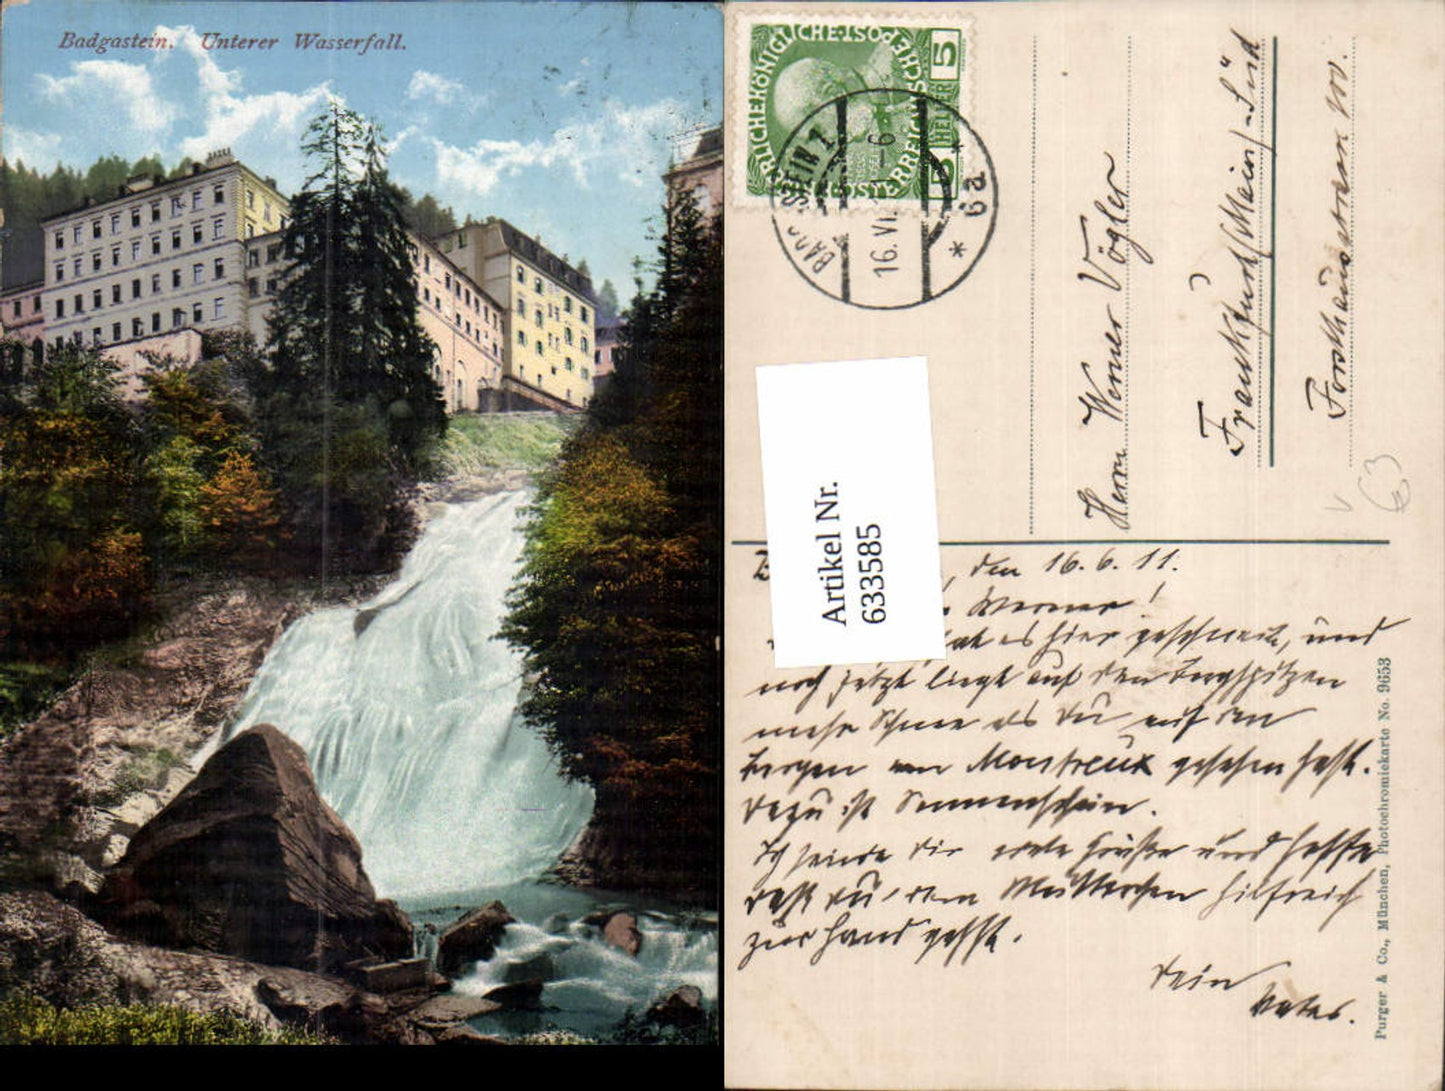 Badgastein. Unterer Wasserfall.
KAISERLICHE KÖNIGLICHE ÖSTERREICHISCHE POST
5 HELLER 5
BAD-GASTEIN 1
16. VI. -6
6a
Artikel Nr.
633585
Herrn Werner Vögler
Frankfurt (Main)-Süd
, den 16. 6. 11.
Werner!
hat es hier geschneit, und
noch jetzt liegt auf den Bergspitzen
mehr Schnee als Du auf den
Bergen von Montreux gesehen hast.
Dazu ist Sonnenschein.
Ich sende Dir viele Grüße und hoffe
daß Du dem Mutterchen hilfreich
zur Hand gehst.
Dein
Vater.
63
Purger & Co., München, Photochromiekarte No. 9653